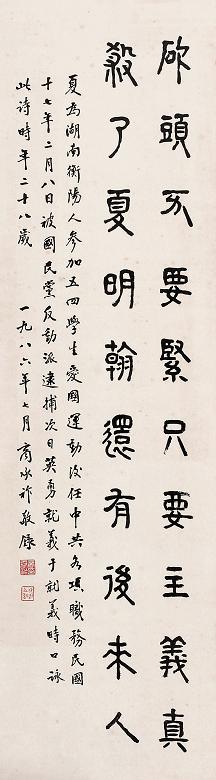 斫頭不要緊只要主義真
殺了夏明翰還有後來人
夏為湖南衡陽人參加五四學生愛國運動後任中共各項職務民國
十七年二月八日被國民黨反動派逮捕次日英勇就義于就義時口詠
此詩時年二十八歲 一九八六年七月商承祚敬錄